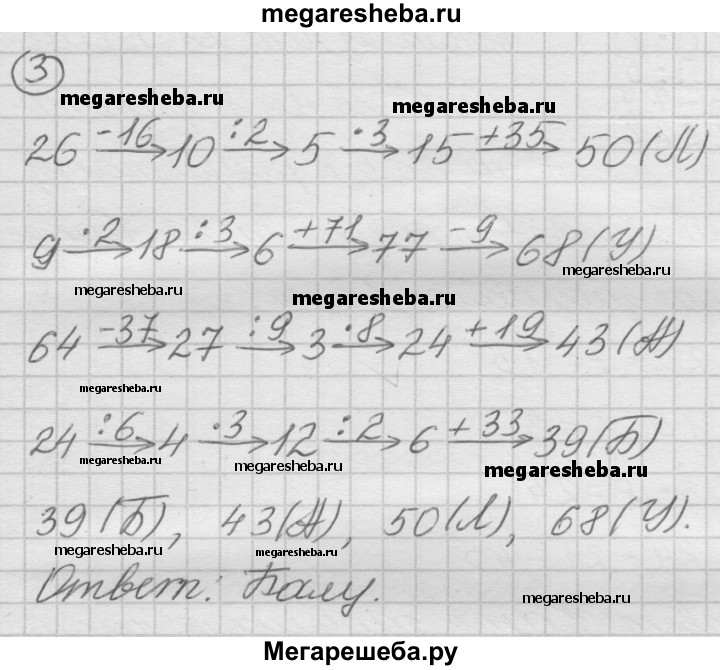 megaresheba.ru
3
megaresheba.ru megaresheba.ru
26 -16→ 10 :2→ 5 ·3→ 15 +35→ 50 (Л)
9 ·2→ 18 :3→ 6 +71→ 77 -9→ 68 (У)
megaresheba.ru megaresheba.ru megaresheba.ru
64 -37→ 27 :9→ 3 ·8→ 24 +19→ 43 (А)
megaresheba.ru
24 :6→ 4 ·3→ 12 :2→ 6 +33→ 39 (Б)
megaresheba.ru megaresheba.ru megaresheba.ru
39 (Б), 43 (А), 50 (Л), 68 (У).
megaresheba.ru megaresheba.ru
Ответ: Балу.
megaresheba.ru
Мегарешеба.ру